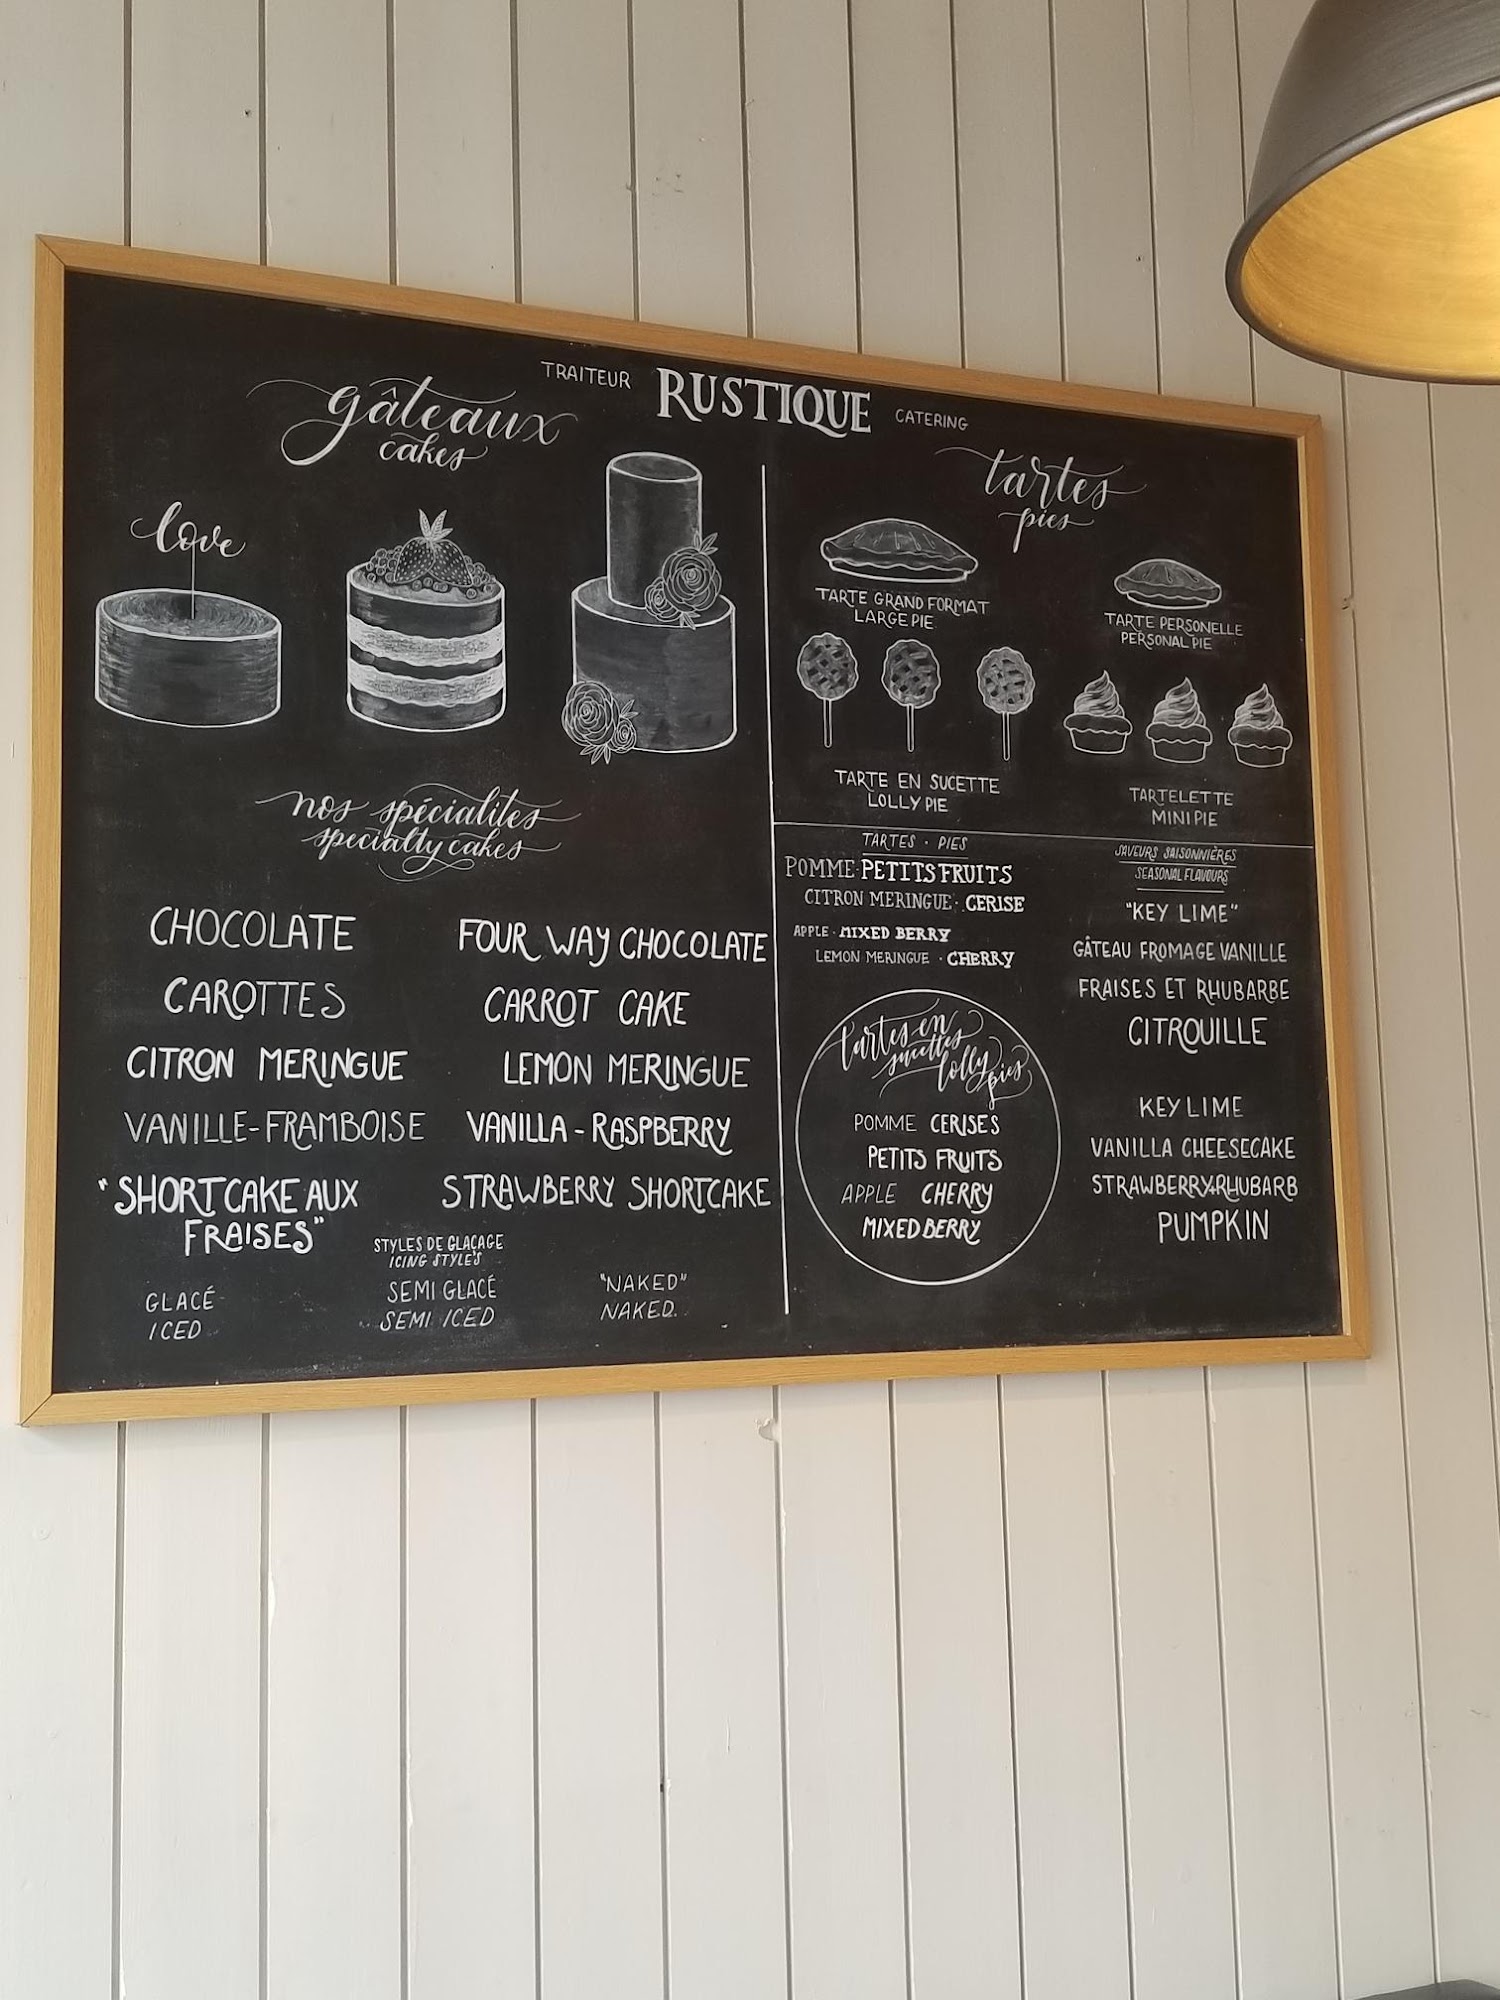 TRAITEUR RUSTIQUE CATERING
gâteaux
cakes
love
nos spécialites
specialty cakes
CHOCOLATE
FOUR WAY CHOCOLATE
CAROTTES
CARROT CAKE
CITRON MERINGUE
LEMON MERINGUE
VANILLE-FRAMBOISE
VANILLA-RASPBERRY
"SHORTCAKE AUX
FRAISES"
STRAWBERRY SHORTCAKE
STYLES DE GLAÇAGE
ICING STYLES
GLACÉ
ICED
SEMI GLACÉ
SEMI ICED
"NAKED"
NAKED
tartes
pies
TARTE GRAND FORMAT
LARGE PIE
TARTE PERSONELLE
PERSONAL PIE
TARTE EN SUCETTE
LOLLY PIE
TARTELETTE
MINI PIE
TARTES · PIES
POMME · PETITS FRUITS
CITRON MERINGUE · CERISE
APPLE · MIXED BERRY
LEMON MERINGUE · CHERRY
tartes en
sucettes
lolly
pies
POMME CERISES
PETITS FRUITS
APPLE CHERRY
MIXED BERRY
SAVEURS SAISONNIÈRES
SEASONAL FLAVOURS
"KEY LIME"
GÂTEAU FROMAGE VANILLE
FRAISES ET RHUBARBE
CITROUILLE
KEY LIME
VANILLA CHEESECAKE
STRAWBERRY+RHUBARB
PUMPKIN